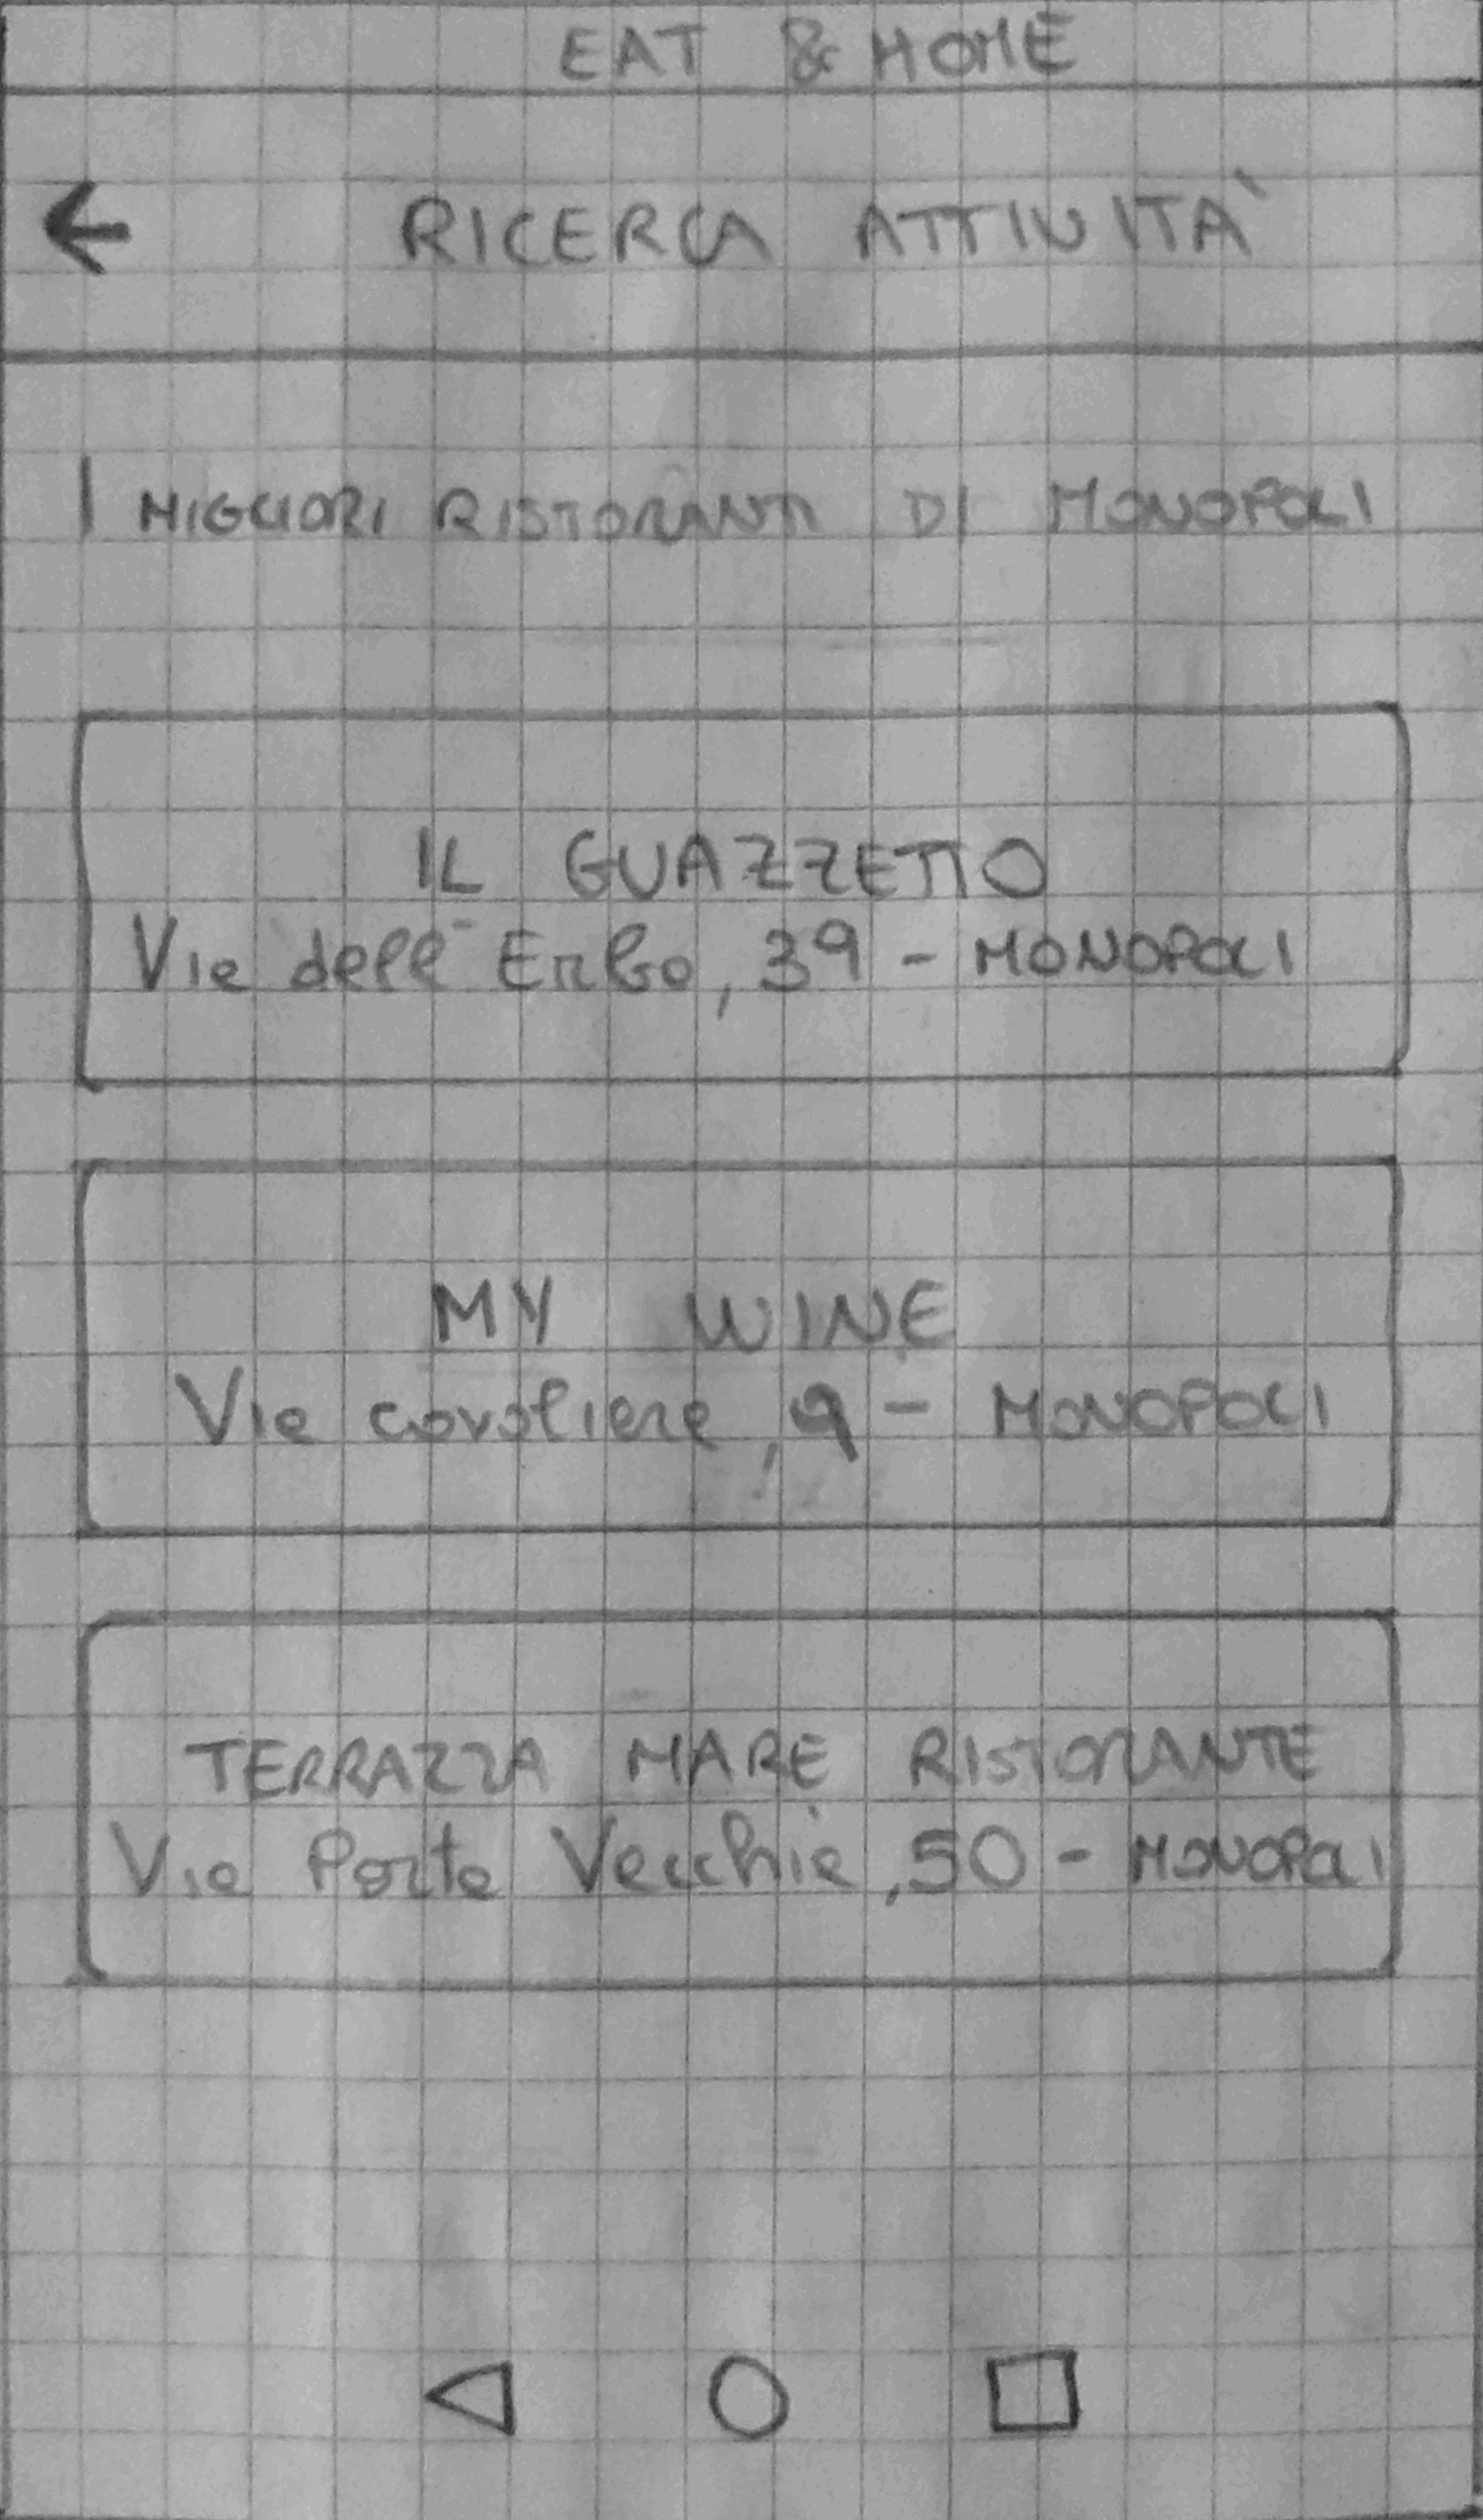 EAT & HOME
RICERCA ATTIVITÀ
I MIGLIORI RISTORANTI DI MONOPOLI
IL GUAZZETTO
Via dell'Erba, 39 - MONOPOLI
MY WINE
Via cavaliere, 9 - MONOPOLI
TERRAZZA MARE RISTORANTE
Via Porta Vecchia, 50 - MONOPOLI